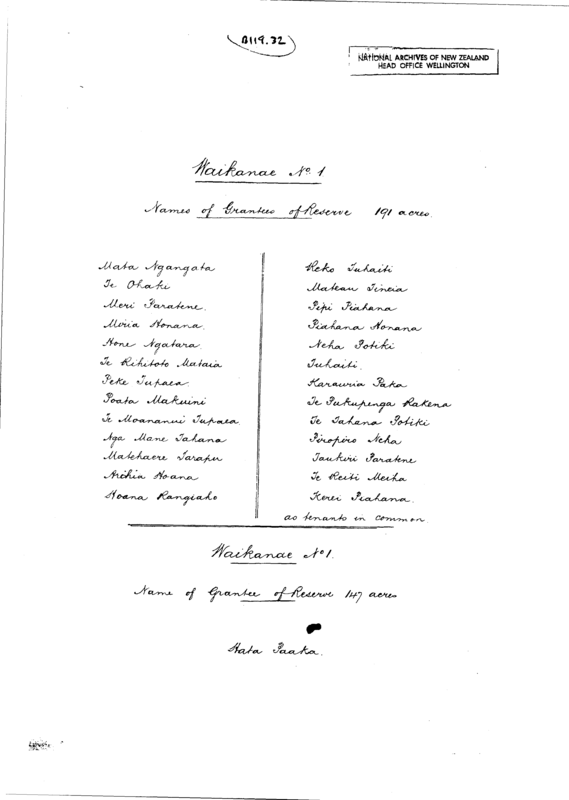 A119.32
NATIONAL ARCHIVES OF NEW ZEALAND
HEAD OFFICE WELLINGTON
Waikanae No. 1
Names of Grantees of Reserve 191 acres.
Mata Ngangata
Te Ohatu
Meri Paratene.
Miria Honana.
Hone Ngatara.
Te Rihitoto Mataia
Peke Tupaea.
Poata Makuini
Te Moananui Tupaea.
Nga Mane Tahana
Matehaere Tarapu
Arihia Hoana
Hoana Rangiaho
Heko Tuhaiti
Mateau Tineia
Pipi Piahana
Piahana Honana
Neha Potiki
Tuhaiti.
Karauria Paka
Te Pukupenga Rakena
Te Tahana Potiki
Piropiro Neha
Taukiri Paratene
Te Reiti Meiha
Kerei Piahana.
as tenants in common
Waikanae No 1.
Name of Grantee of Reserve 147 acres
Hata Paaka.